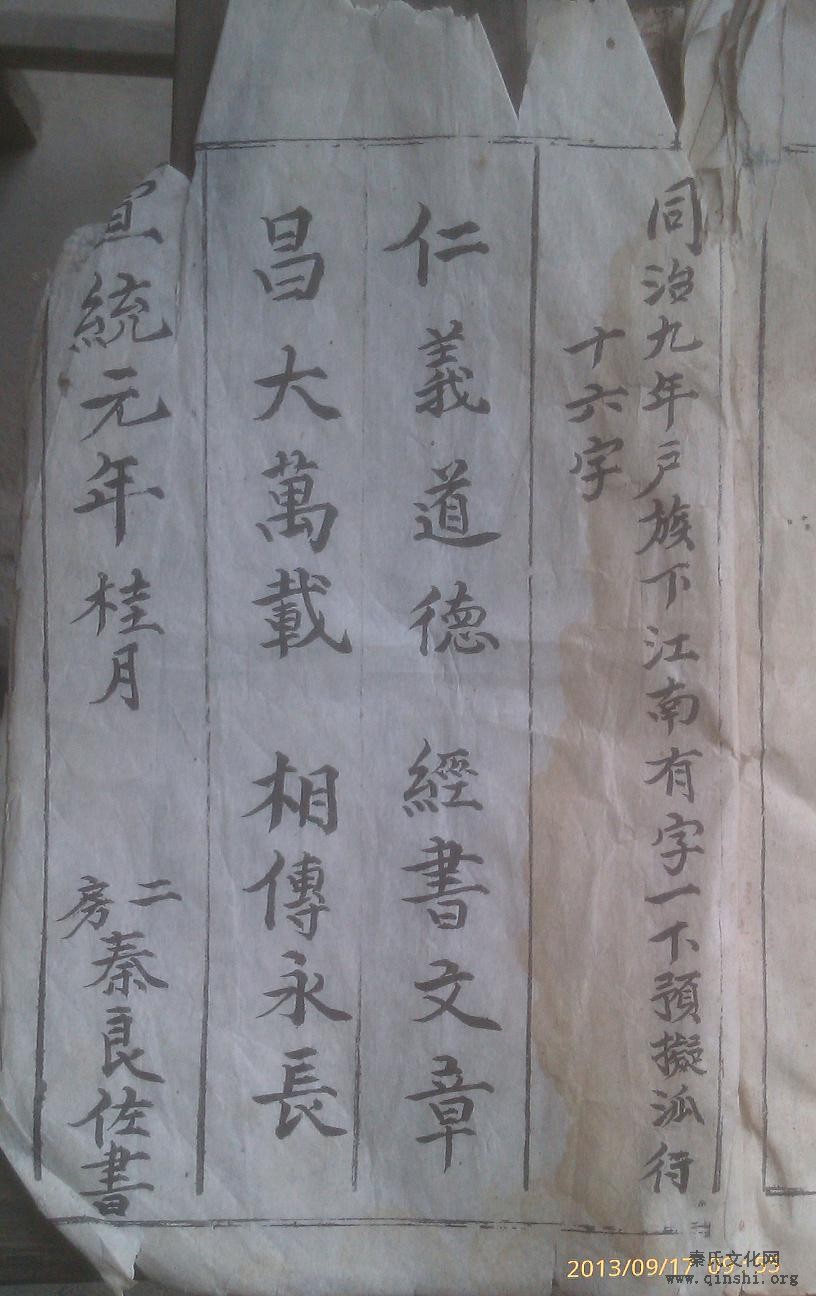 同治九年戶族下江南有字一下預擬派待
十六字
仁義道德 經書文章
昌大萬載 相傳永長
宣統元年桂月 二房秦良佐書
2013/09/17 09:53
秦氏文化网
www.qinshi.org